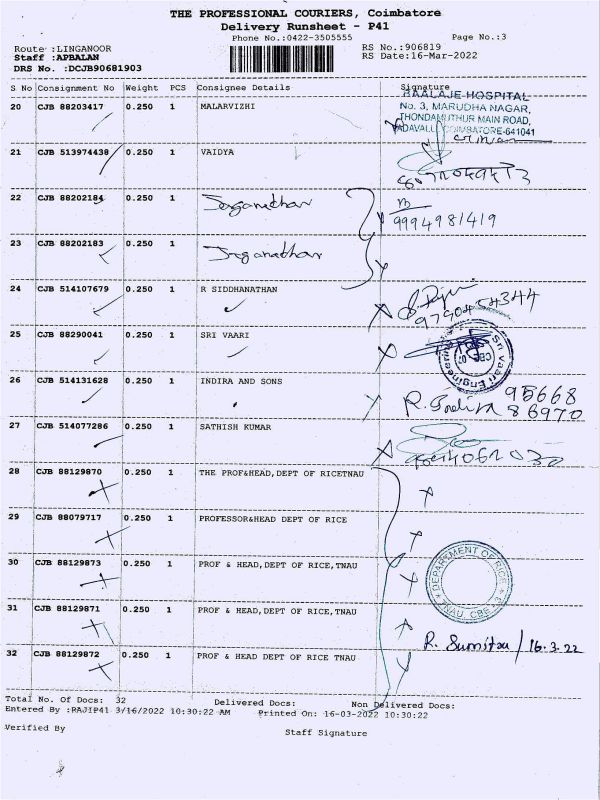 THE PROFESSIONAL COURIERS, Coimbatore
Delivery Runsheet - P41
Phone No.:0422-3505555
Page No.:3
Route :LINGANOOR
RS No.:906819
Staff :APBALAN
RS Date:16-Mar-2022
DRS No. :DCJB90681903
S No Consignment No Weight PCS Consignee Details Signature
20 CJB 88203417 0.250 1 MALARVIZHI
BAALAJE HOSPITAL
No. 3, MARUDHA NAGAR,
THONDAMUTHUR MAIN ROAD,
VADAVALLI, COIMBATORE-641041
21 CJB 513974438 0.250 1 VAIDYA
22 CJB 88202184 0.250 1 Jaganathan
9994981419
23 CJB 88202183 0.250 1 Jaganathan
24 CJB 514107679 0.250 1 R SIDDHANATHAN
9790454344
25 CJB 88290041 0.250 1 SRI VAARI
Sri vaari Engineering
CBE-07
26 CJB 514131628 0.250 1 INDIRA AND SONS
R. Indira 95668
86970
27 CJB 514077286 0.250 1 SATHISH KUMAR
28 CJB 88129870 0.250 1 THE PROF&HEAD,DEPT OF RICETNAU
29 CJB 88079717 0.250 1 PROFESSOR&HEAD DEPT OF RICE
30 CJB 88129873 0.250 1 PROF & HEAD,DEPT OF RICE,TNAU
DEPARTMENT OF RICE
TNAU, CBE-3
31 CJB 88129871 0.250 1 PROF & HEAD,DEPT OF RICE,TNAU
R. Sumitra / 16.3.22
32 CJB 88129872 0.250 1 PROF & HEAD DEPT OF RICE TNAU
Total No. Of Docs: 32 Delivered Docs: Non Delivered Docs:
Entered By :RAJIP41 3/16/2022 10:30:22 AM Printed On: 16-03-2022 10:30:22
Verified By
Staff Signature